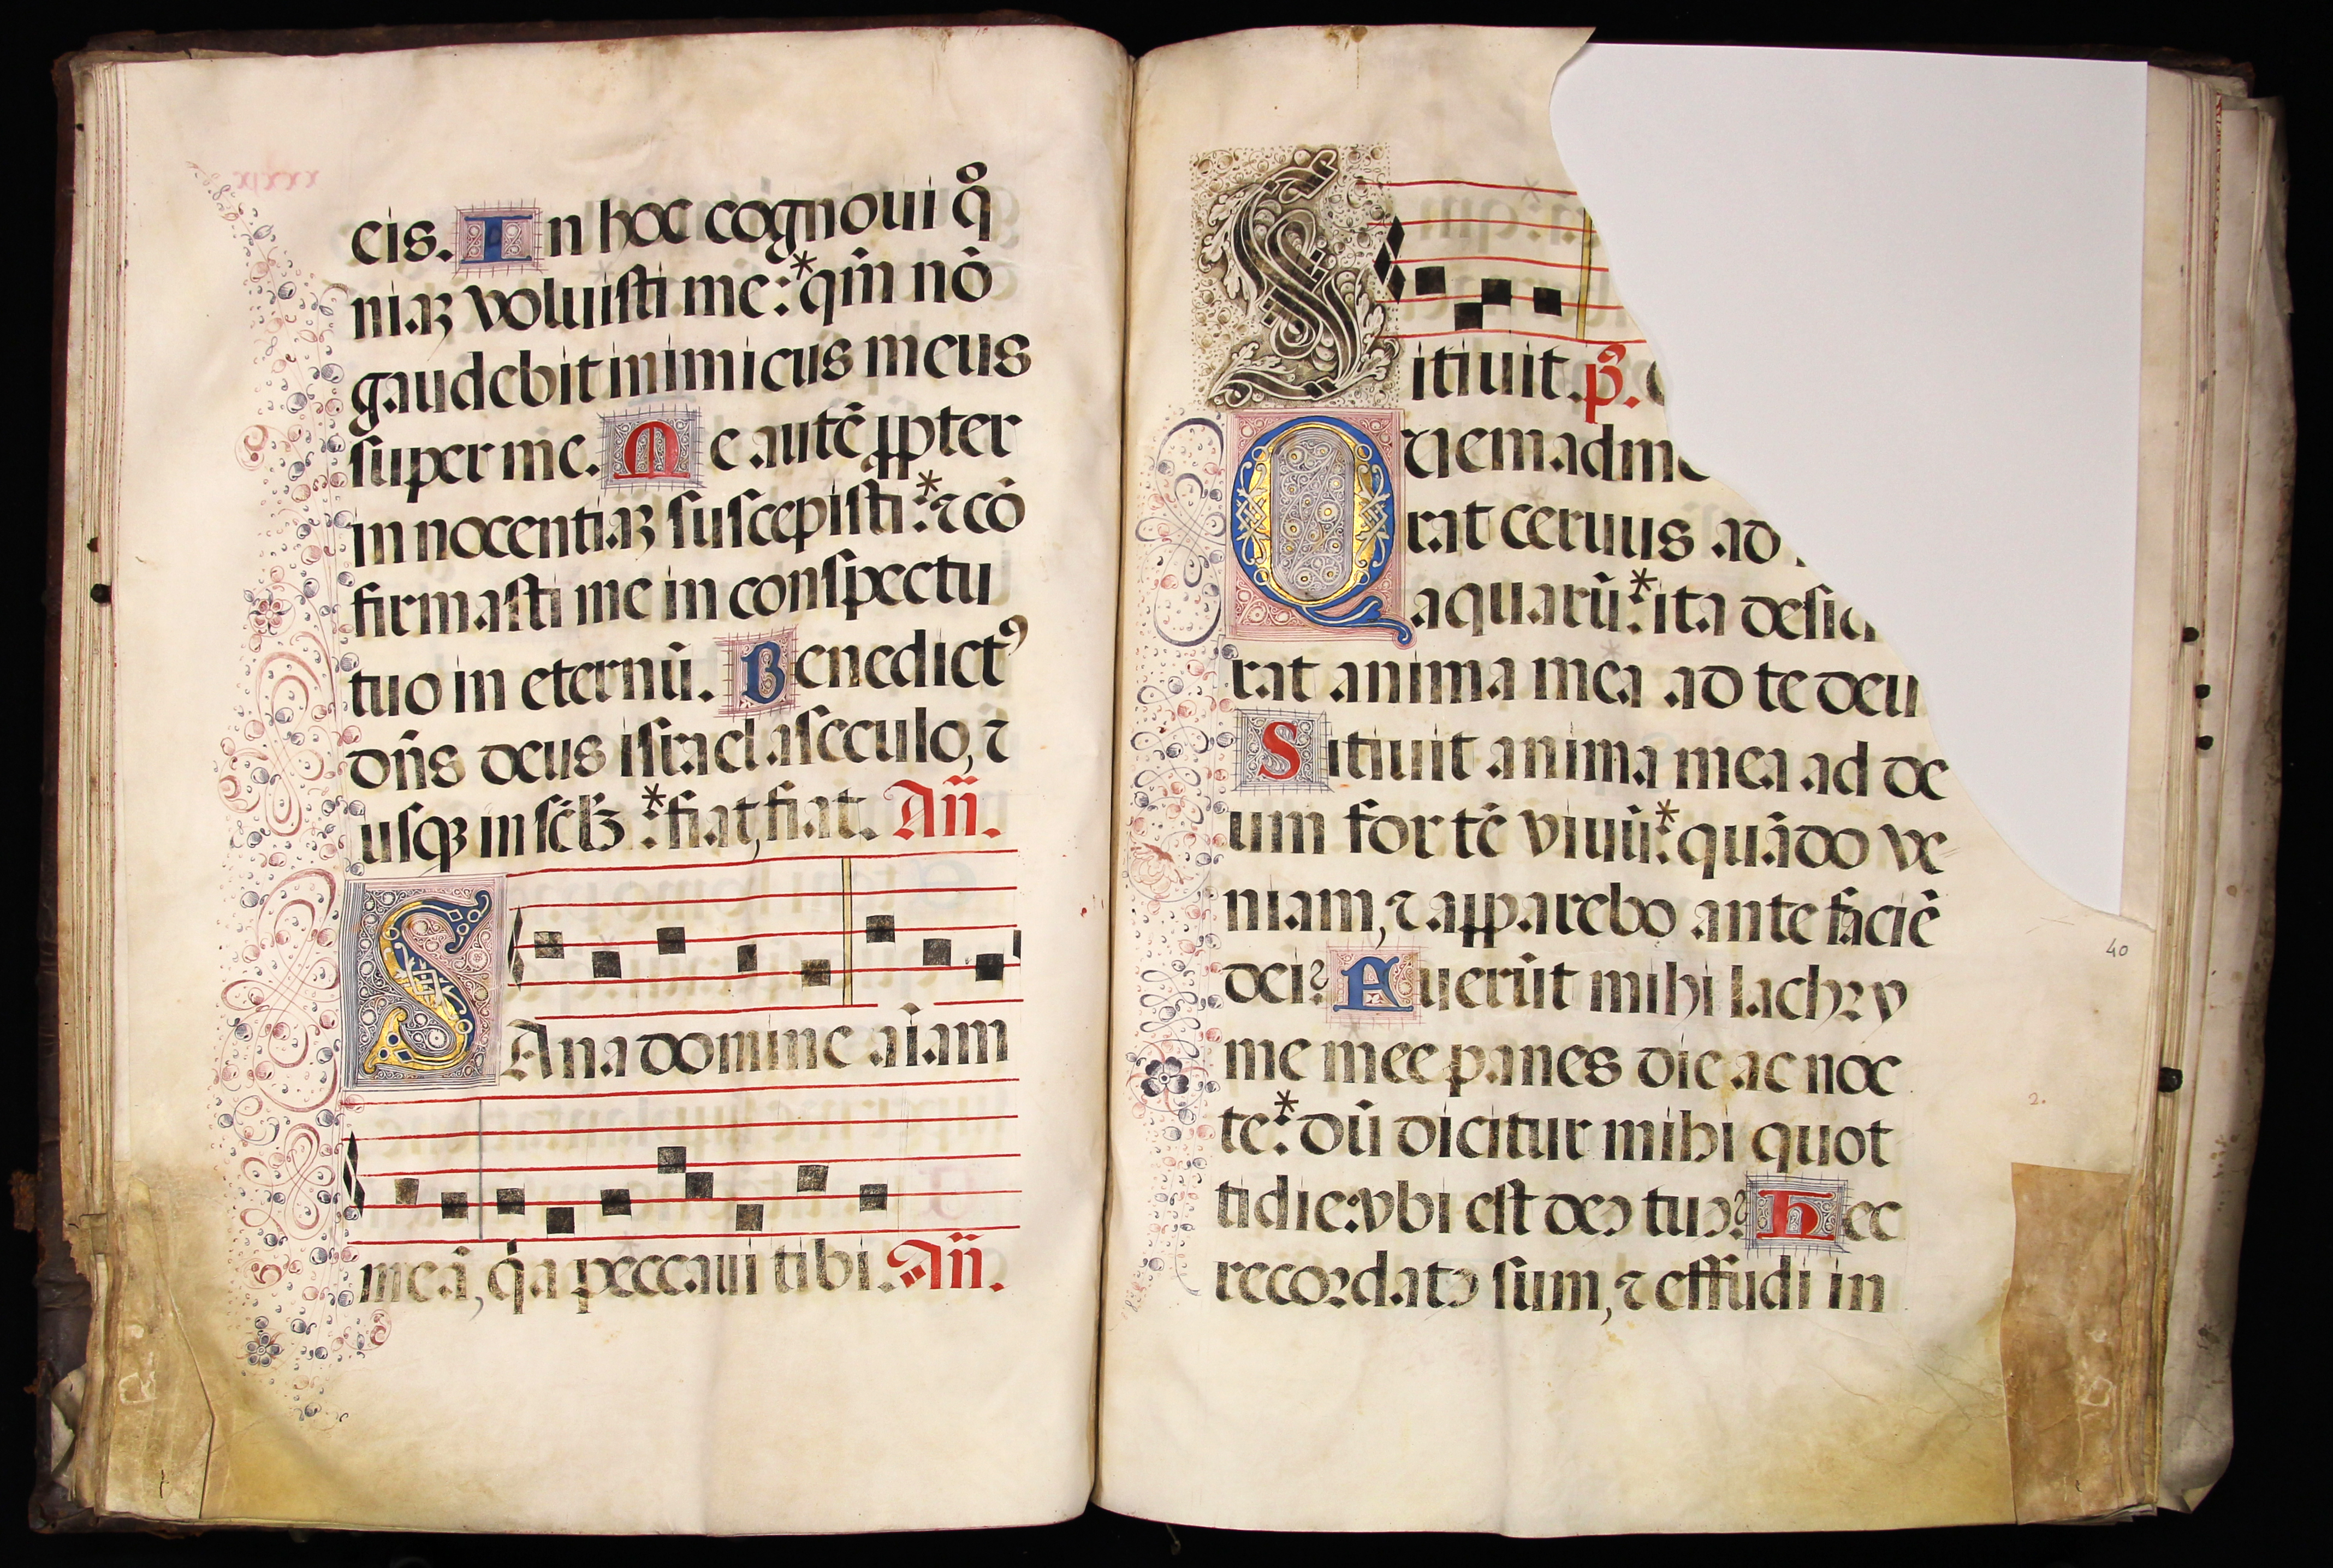 cis. In hoc cognoui qm̄
niaꝫ voluisti me:* qm̄ nō
gaudebit inimicus meus
super me. Me autē ꝓpter
innocentiaꝫ suscepisti:* ⁊ cō
firmasti me in conspectu
tuo in eternū. Benedictꝰ
dn̄s deus israel a seculo, ⁊
usqꝫ in sc̄lꝫ:* fiat, fiat. Añ.
SAna domine aīam
meā, q̇a peccaui tibi. Añ.
Sitiuit. p̄.
Quemadm
rat ceruus ad
aquarū:* ita desid
rat anima mea ad te deu
Sitiuit anima mea ad de
um fortē viuū:* quādo ve
niam, ⁊ apparebo ante faciē
dei? Fuerūt mihi lachry
me mee panes die ac noc
te:* dū dicitur mihi quot
tidie: vbi est deꝰ tuꝰ? Hec
recordatꝰ sum, ⁊ effudi in
40
2.